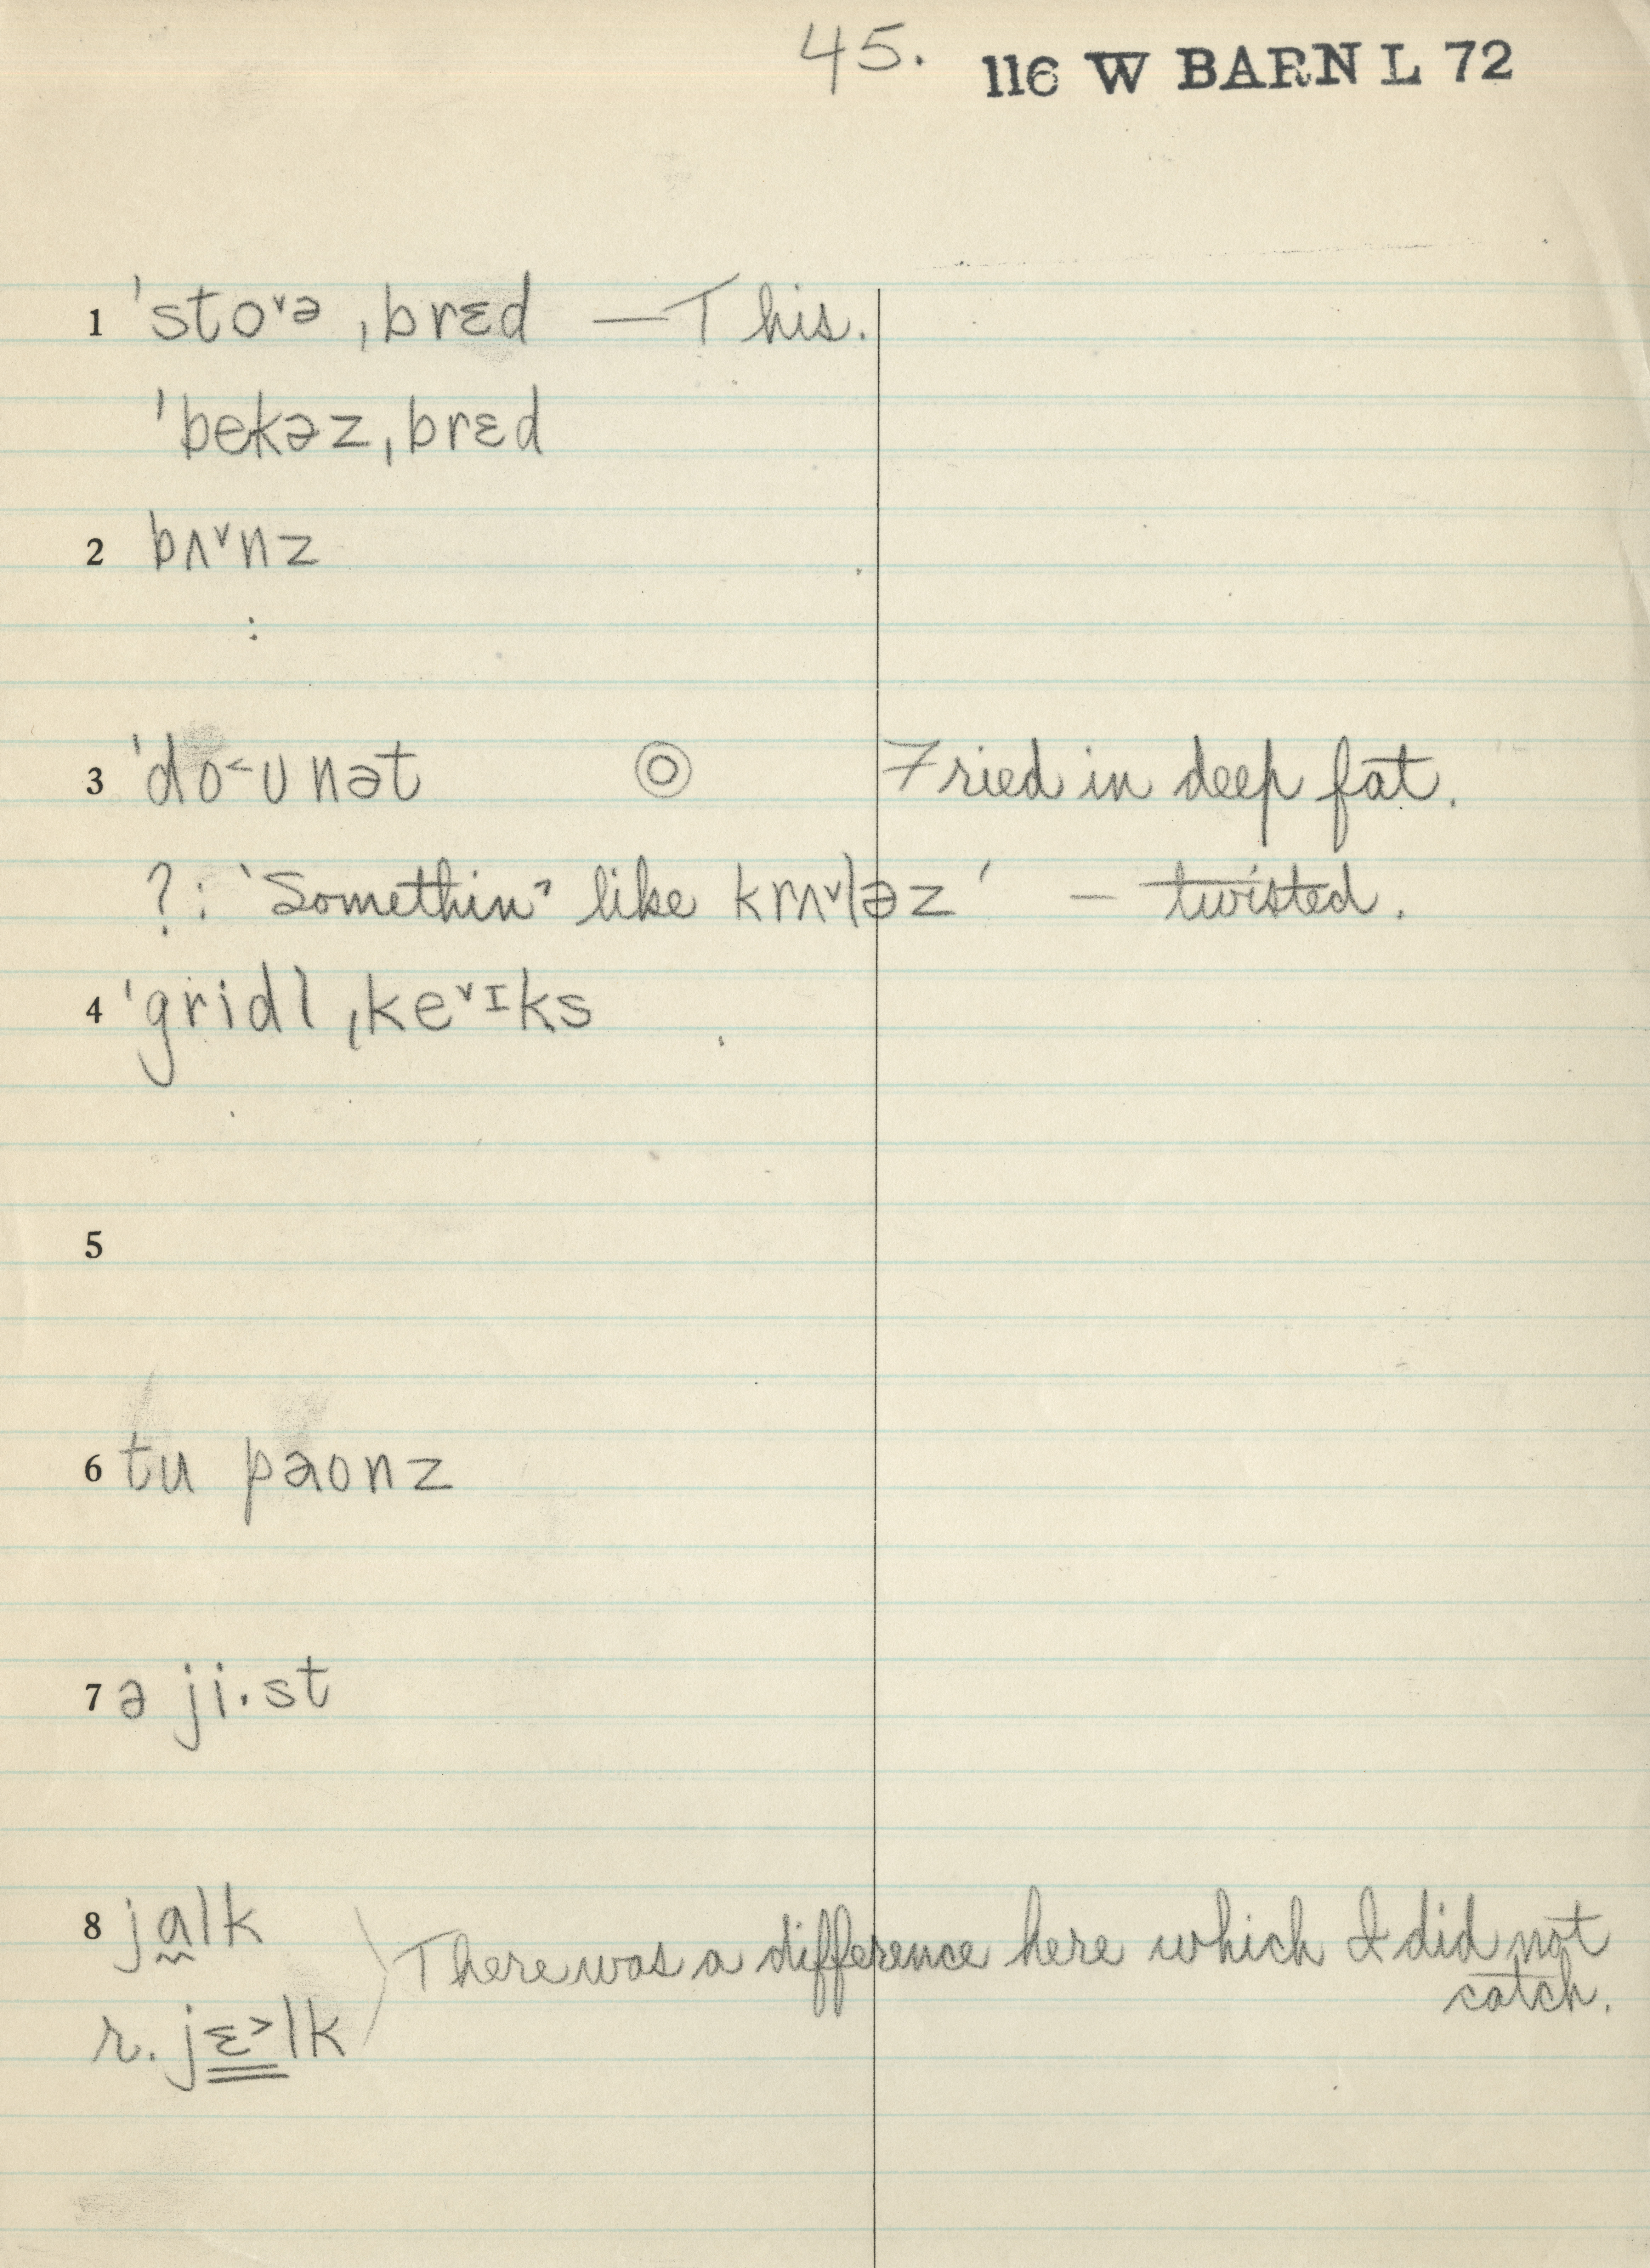 45. 116 W BARN L 72
1 ˈstoᵛᵊ ˌbrɛd — This.
ˈbekəz ˌbrɛd
2 bʌᵛnz
:
3 ˈdo˂ʊnət ◎ Fried in deep fat.
?: ‘Somethin’ like krʌᵛləz’ — twisted.
4 ˈgridl ˌkeᵛᶦks
5
6 tu paʊnz
7 ə ji·st
8 ja̰lk
r. jɛ˃lk
There was a difference here which I did not
catch.